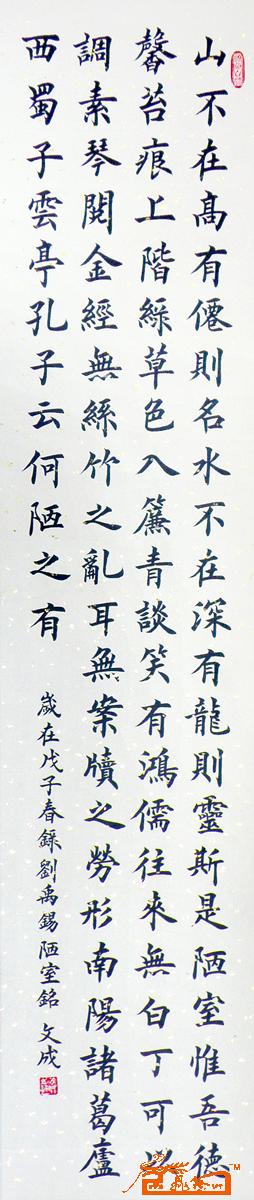 山不在高有僊則名水不在深有龍則靈斯是陋室惟吾德
馨苔痕上階綠草色入簾青談笑有鴻儒往來無白丁可以
調素琴閱金經無絲竹之亂耳無案牘之勞形南陽諸葛廬
西蜀子雲亭孔子云何陋之有
歲在戊子春錄劉禹錫陋室銘 文成